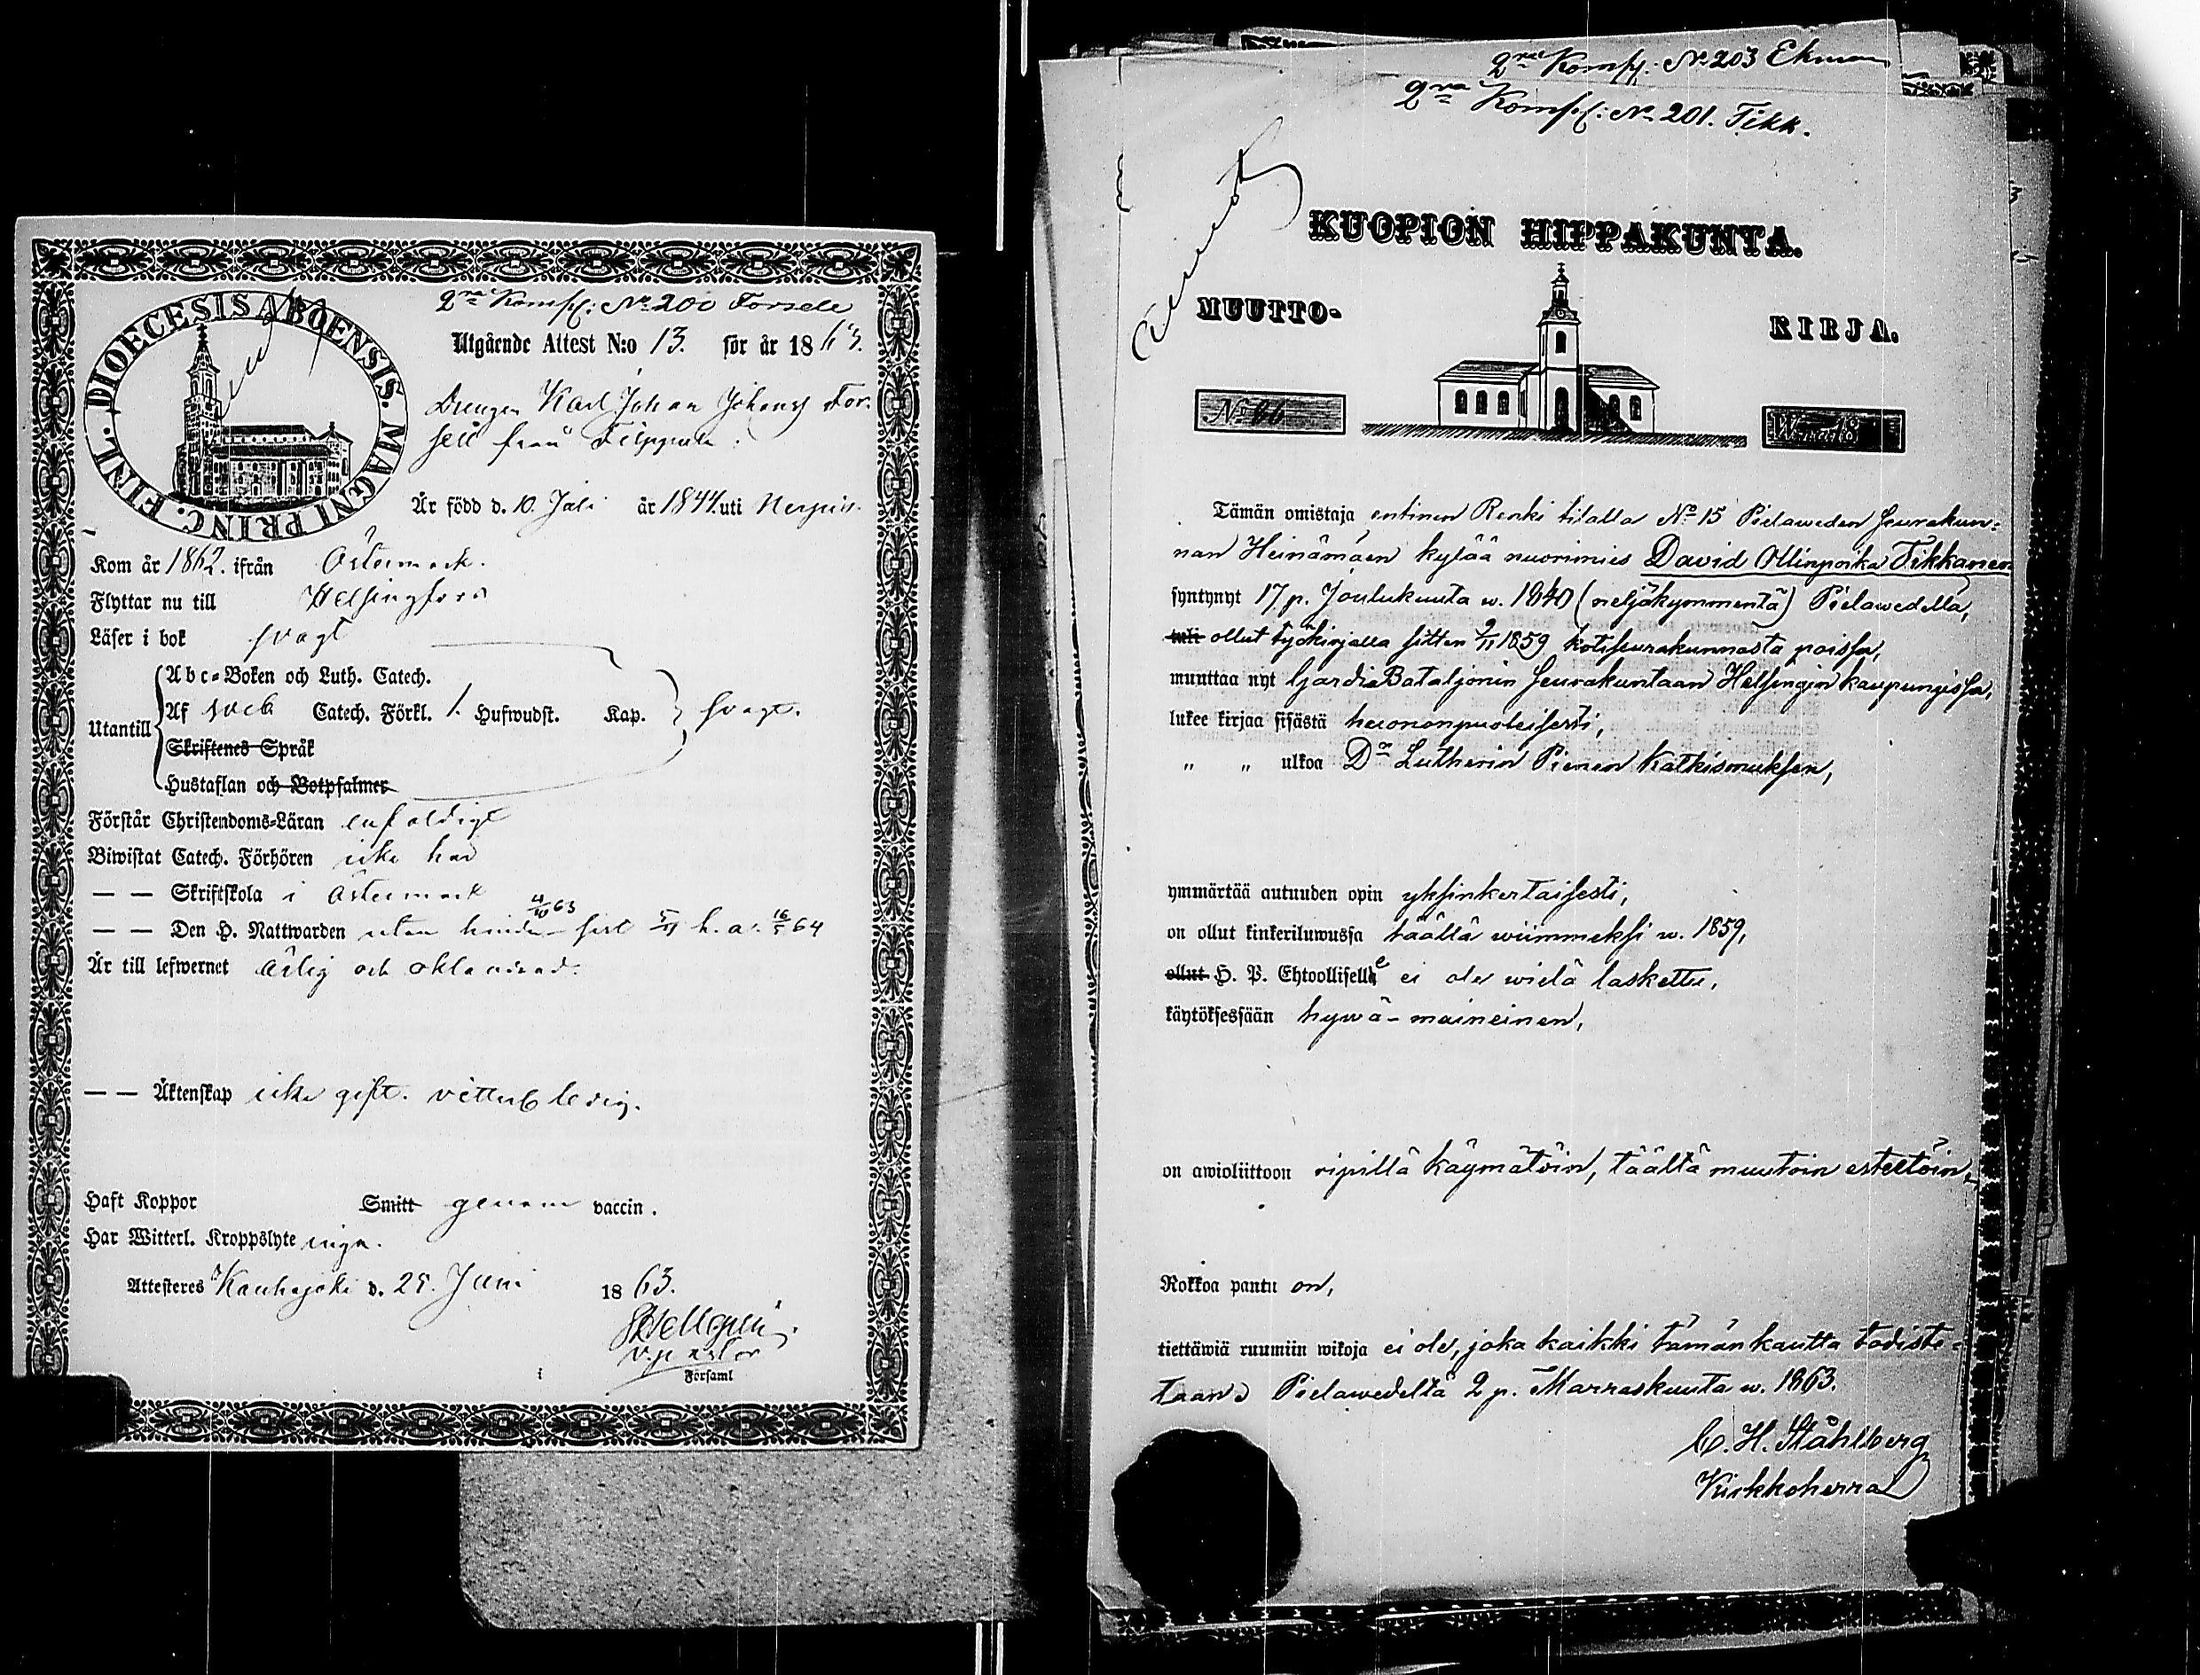 2ra Komp: No 200 Forsell
DIOECESIS ABOENSIS. MAGNI PRINC. FINL.
Utgående Attest N:o 13. för år 1863.
Drengen Karl Johan Johanss For-
sell från Filppula.
Är född d. 10. Juli år 1844. uti Nerpis.
Kom år 1862. ifrån Östermark.
Flyttar nu till Helsingfors
Läser i bok svagt
Abc-Boken och Luth. Catech.
Utantill Af Sveb Catech. Förkl. 1. Hufwudst. Kap. svagt.
Skriftenes Språk
Hustaflan och Botpsalmer
Förstår Christendoms-Läran enfaldigt
Biwistat Catech. Förhören icke här
— — Skriftskola i Östermark
— — Den H. Nattwarden utan hinder h. a. 16/5 64
4/10 63
Är till lefwernet ärlig och oklandrad.
— — Äktenskap icke gift. vitterl. ledig.
Haft Koppor Smitt genom vaccin.
Har Witterl. Kroppslyte inga.
Attesteres Kauhajoki d. 25. Juni 1863.
v. pastor
Församl
2ra Komp: No 203 Ekman
2ra Komp: No 201. Tikk.
KUOPION HIPPAKUNTA.
MUUTTO-
KIRJA.
No 66
W-na 18
Tämän omistaja entinen Renki tilalla No 15 Pielaweden seurakun-
nan Heinämäen kylää nuorimies David Ollinpoika Tikkanen
syntynyt 17 p. Joulukuuta w. 1840 (neljäkymmentä) Pielawedellä,
tuli ollut työkirjalla sitten 9/11 1859 kotiseurakunnasta poissa,
muuttaa nyt Gardia Bataljonin seurakuntaan Helsingin kaupungissa,
lukee kirjaa sisästä huononpuoleisesti,
" " ulkoa Dr Lutherin Pienen Katkismuksen,
ymmärtää autuuden opin yksinkertaisesti,
on ollut kinkeriluwussa täällä wiimmeksi w. 1859,
ollut H. P. Ehtoolliselle ei ole wielä laskettu,
käytöksessään hywä-maineinen,
on awioliittoon ripillä käymätöin, täältä muutoin esteetöin,
Rokkoa pantu on,
tiettäwiä ruumiin wikoja ei ole, joka kaikki tämän kautta todiste-
taan Pielawedeltä 2 p. Marraskuuta w. 1863.
C. H. Ståhlberg
Kirkkoherra